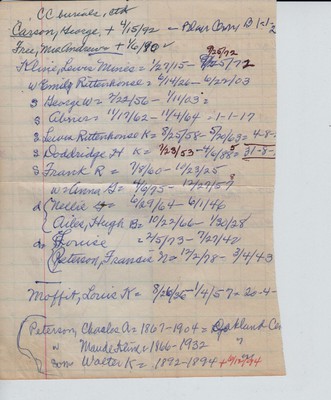 CC burials, etc
Carson, George, + 4/15/92 - Plains Cem, B
Free, Mrs Andrew + 1/6/90
9/25/72
Kline, Lewis Mines = 1/27/15 - 8/25/72
w Emily Rittenhouse = 6/14/26 - 6/27/03
s George W = 2/22/56 - 7/11/03 =
s Abner = 11/17/62 - 11/4/64 = 1-1-17
s Lewis Rittenhouse K = 8/25/58 - 5/29/63 = 4-8-
s Doddridge H K = 7/23/53 - 4/6/85 = 31-8-
s Frank R = 7/8/60 - 10/23/25
w = Anna G = 4/6/75 - 12/27/57
d Nellie = 6/29/64 - 6/1/46
Ailes, Hugh B = 10/22/66 - 1/30/28
da Louise = 2/5/73 - 7/27/42
Peterson, Francis N = 12/2/78 - 3/4/43
Moffit, Louis K = 8/26/36 1/4/57 = 20-4-
Peterson, Charles A = 1867-1904 = Oakland Cem
" Maude Kline = 1866-1932 "
son Walter K = 1892-1894